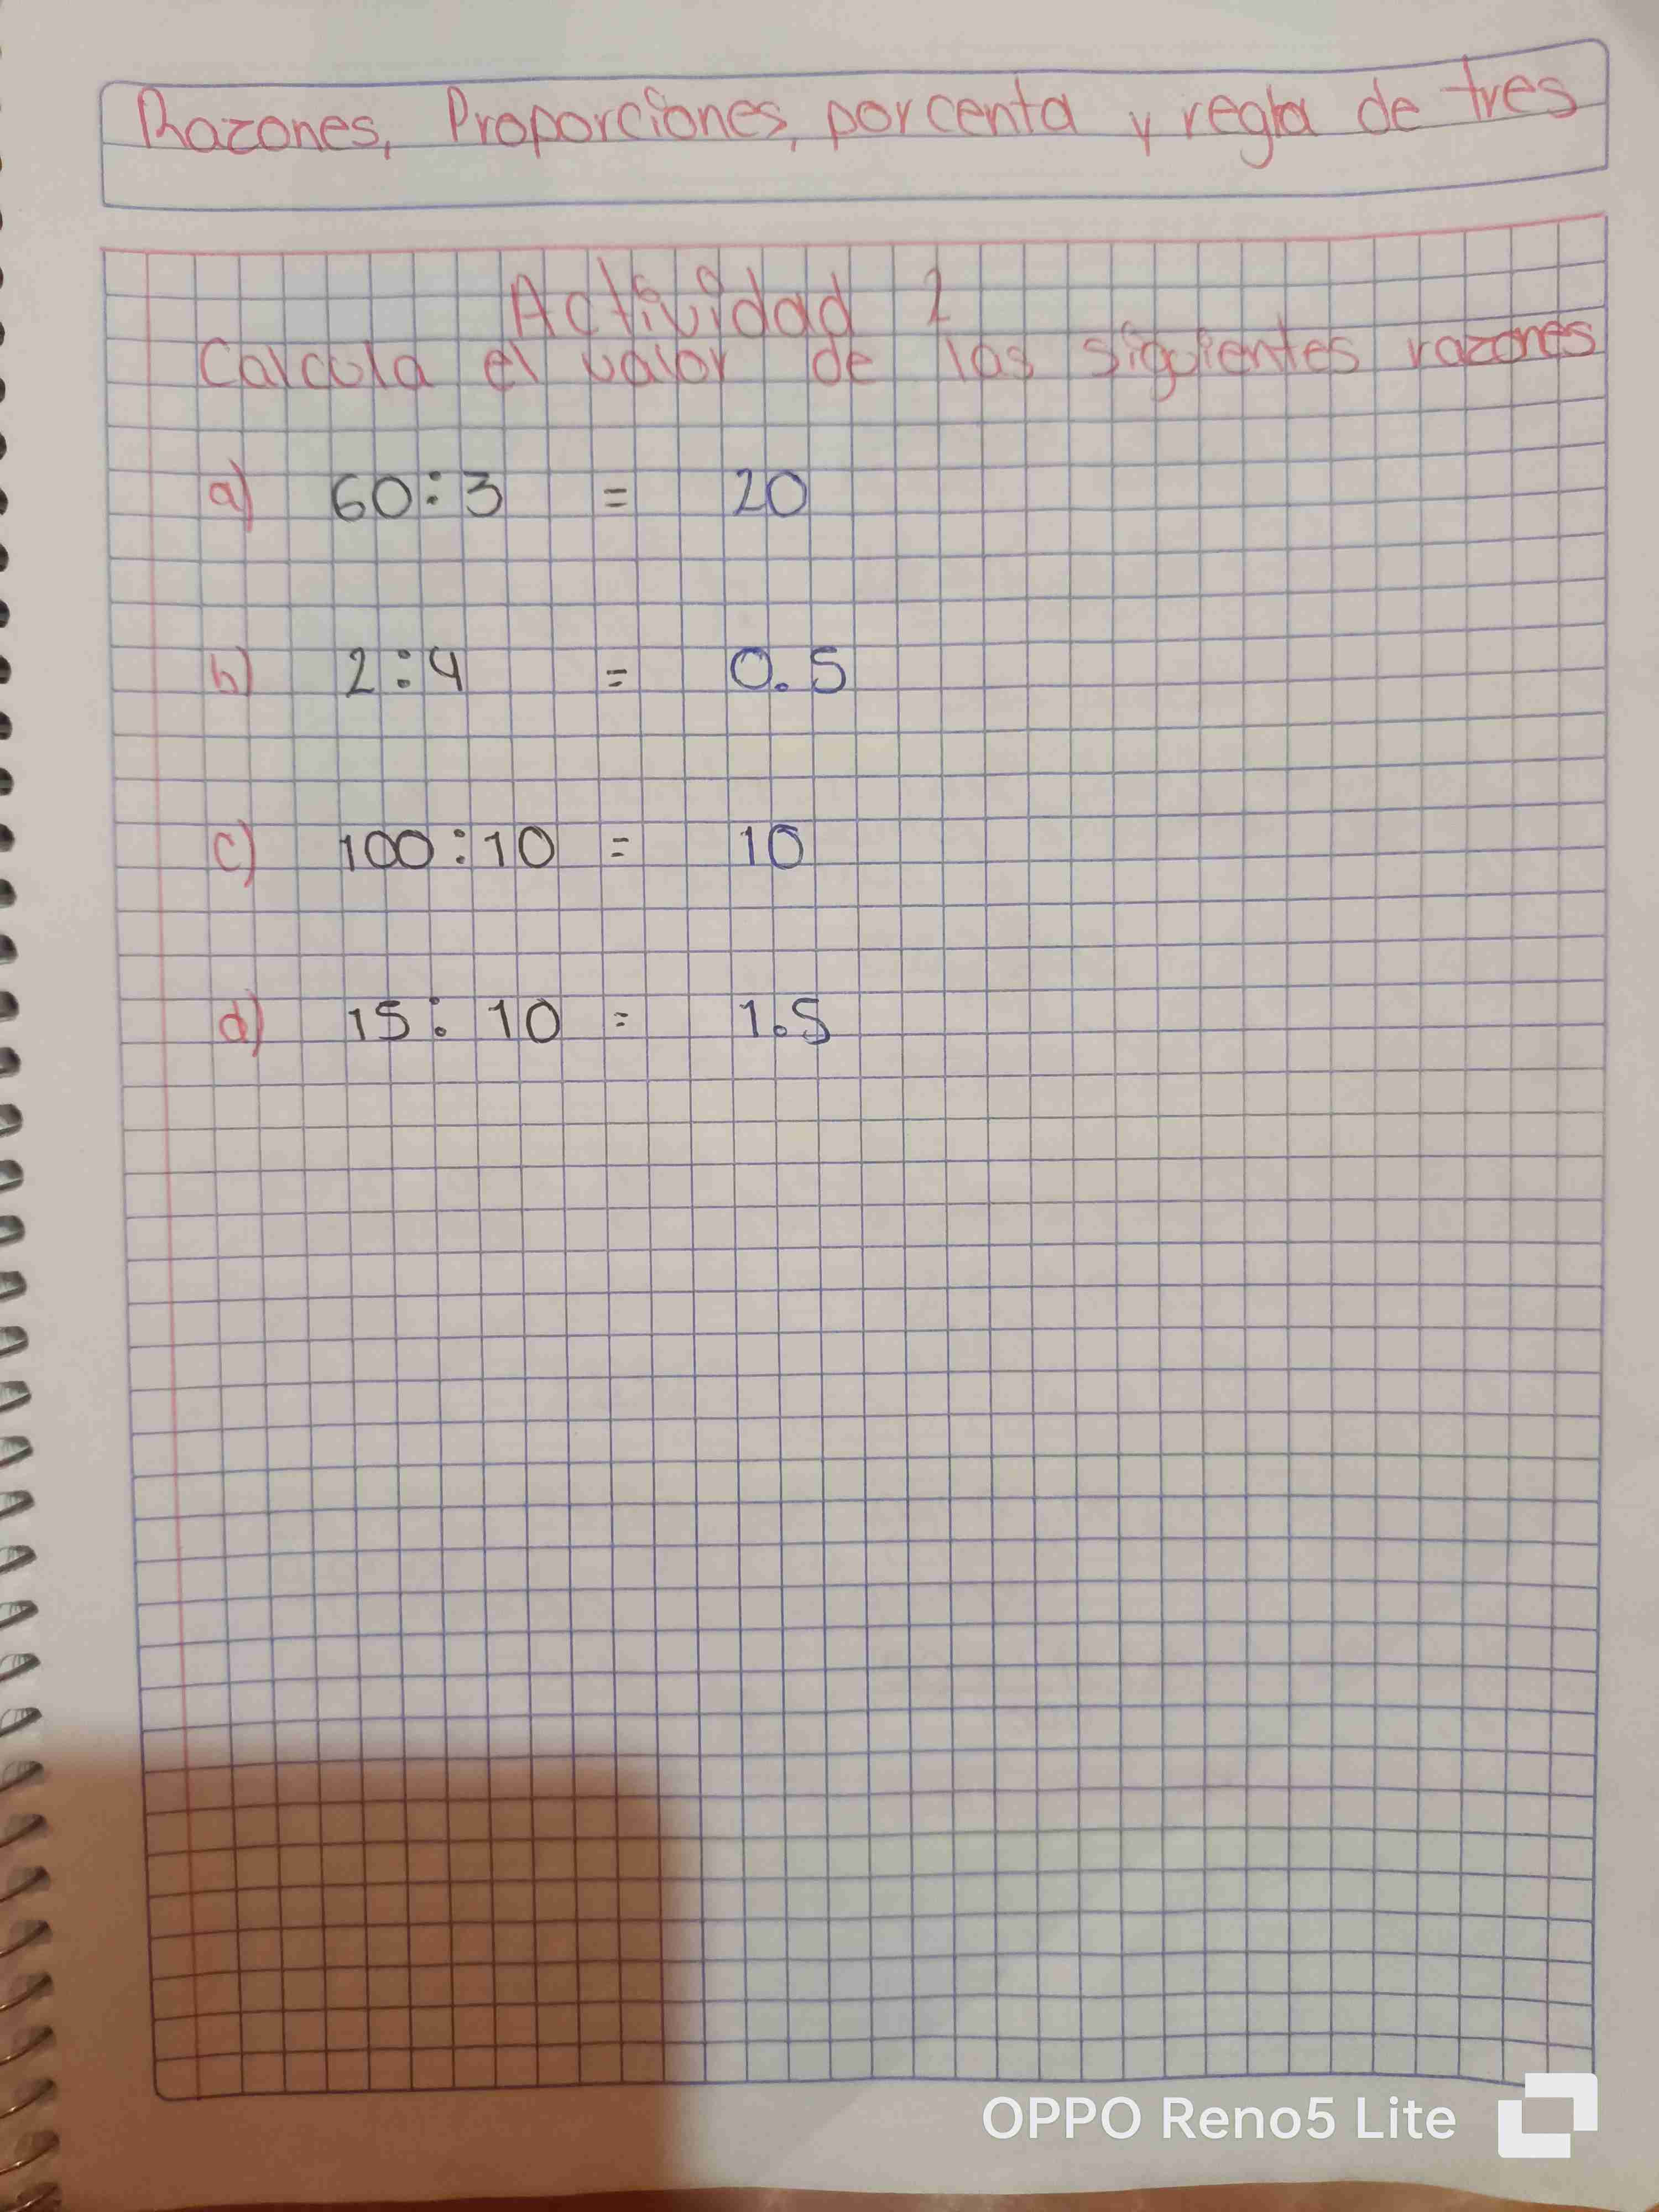 Razones, Proporciones, porcenta y regla de tres
Actividad 1
Carcula el valor de las siguientes razones
a) 60:3 = 20
b) 2:4 = 0.5
c) 100:10 = 10
d) 15:10 = 1.5
OPPO Reno5 Lite